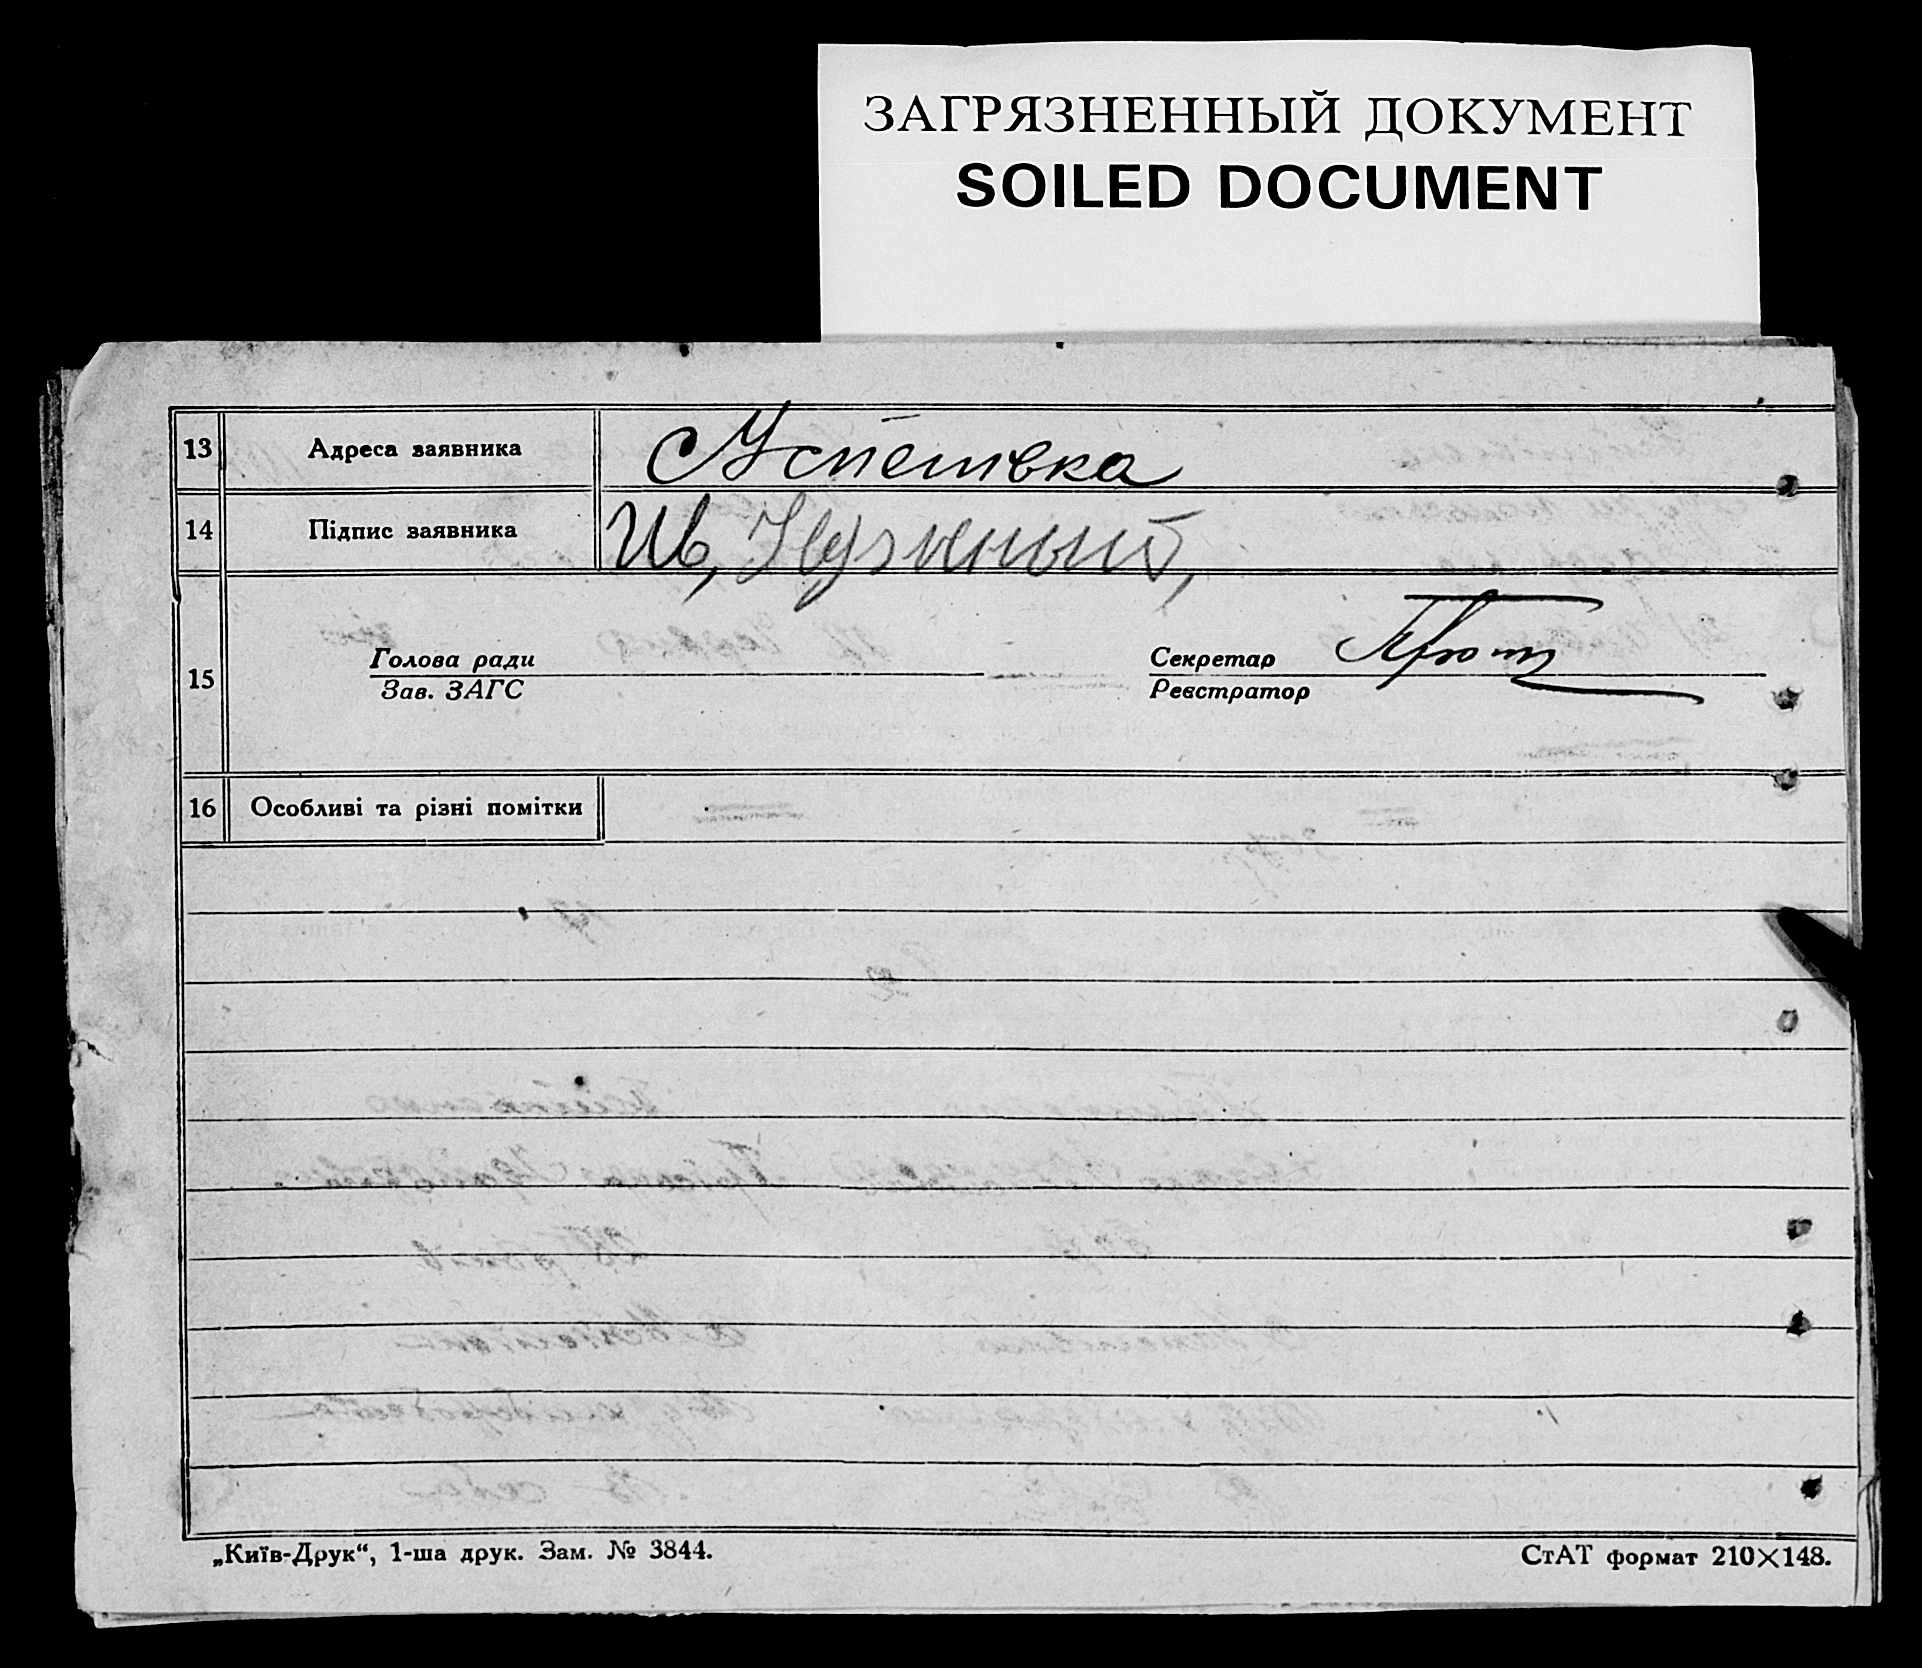 ЗАГРЯЗНЕННЫЙ ДОКУМЕНТ
SOILED DOCUMENT
13 Адреса заявника
14 Підпис заявника Ив,
15 Голова ради Секретар
Зав. ЗАГС Реєстратор
16 Особливі та різні помітки
„Київ-Друк“, 1-ша друк. Зам. № 3844. СтАТ формат 210×148.